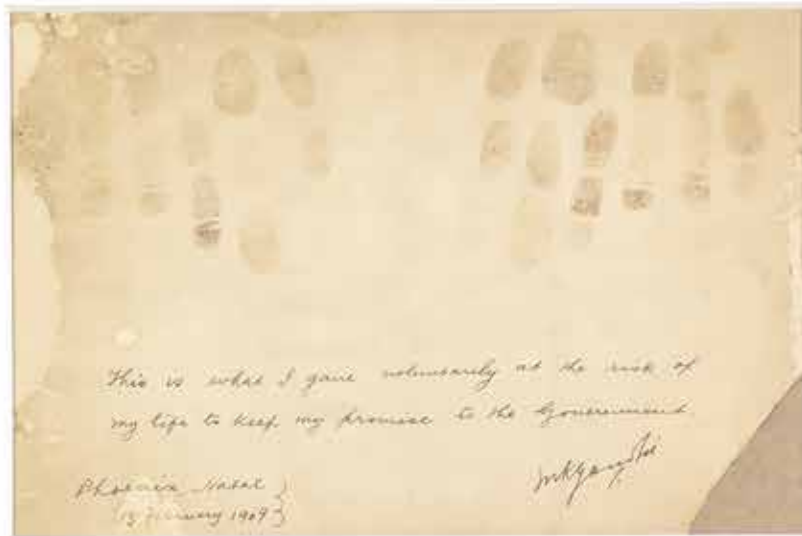 This is what I gave voluntarily at the risk of
my life to keep my promise to the Government.
MKGandhi
Phoenix, Natal
February 1909